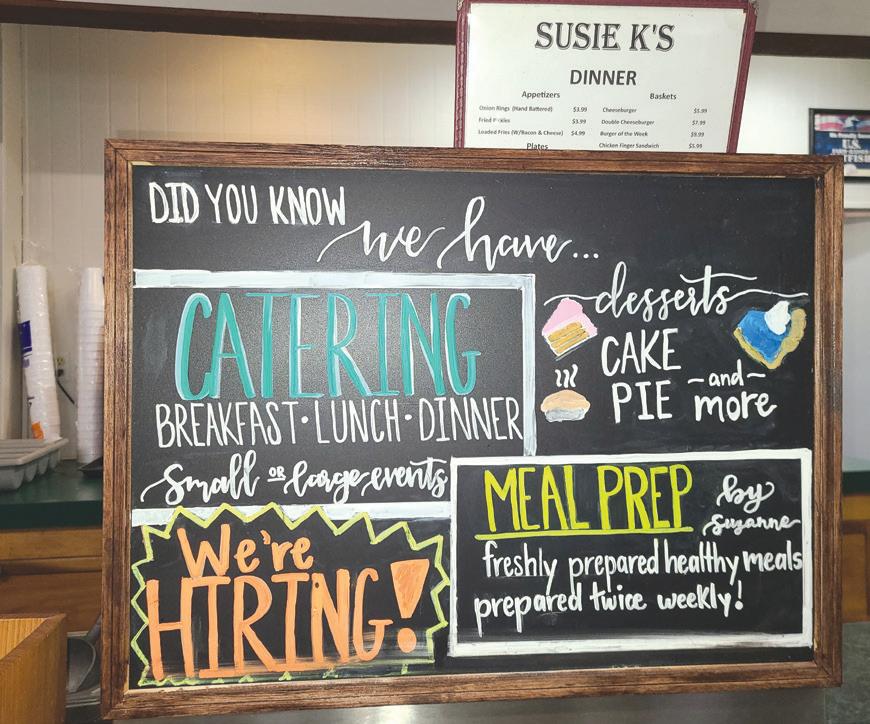 SUSIE K'S
DINNER
Appetizers
Onion Rings (Hand Battered) $3.99
Fried Pickles $3.99
Loaded Fries (W/Bacon & Cheese) $4.99
Plates
Baskets
Cheeseburger $5.99
Double Cheeseburger $7.99
Burger of the Week $8.99
Chicken Finger Sandwich $5.99
U.S.
DID YOU KNOW
we have...
CATERING
BREAKFAST · LUNCH · DINNER
small OR large events
We're
HIRING!
desserts
CAKE
PIE ~and~
more
MEAL PREP by
suzanne
freshly prepared healthy meals
prepared twice weekly!